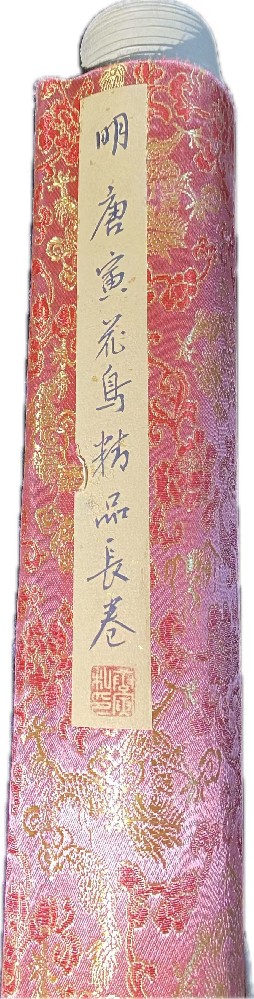 明唐寅花鳥精品長卷